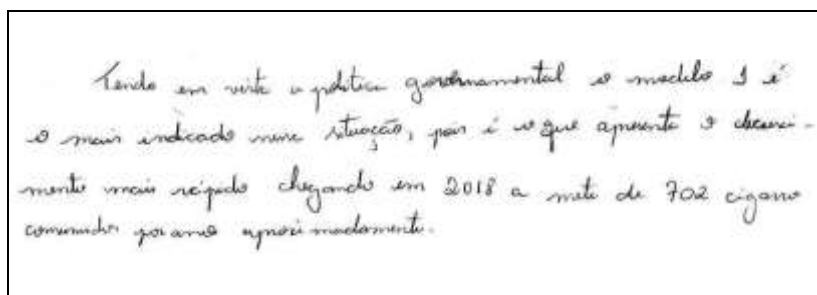 Tendo em vista a política governamental o modelo 1 é
o mais indicado nessa situação, pois é o que apresenta o decresci-
mento mais rápido chegando em 2018 a meta de 702 cigarros
consumidos por ano aproximadamente.